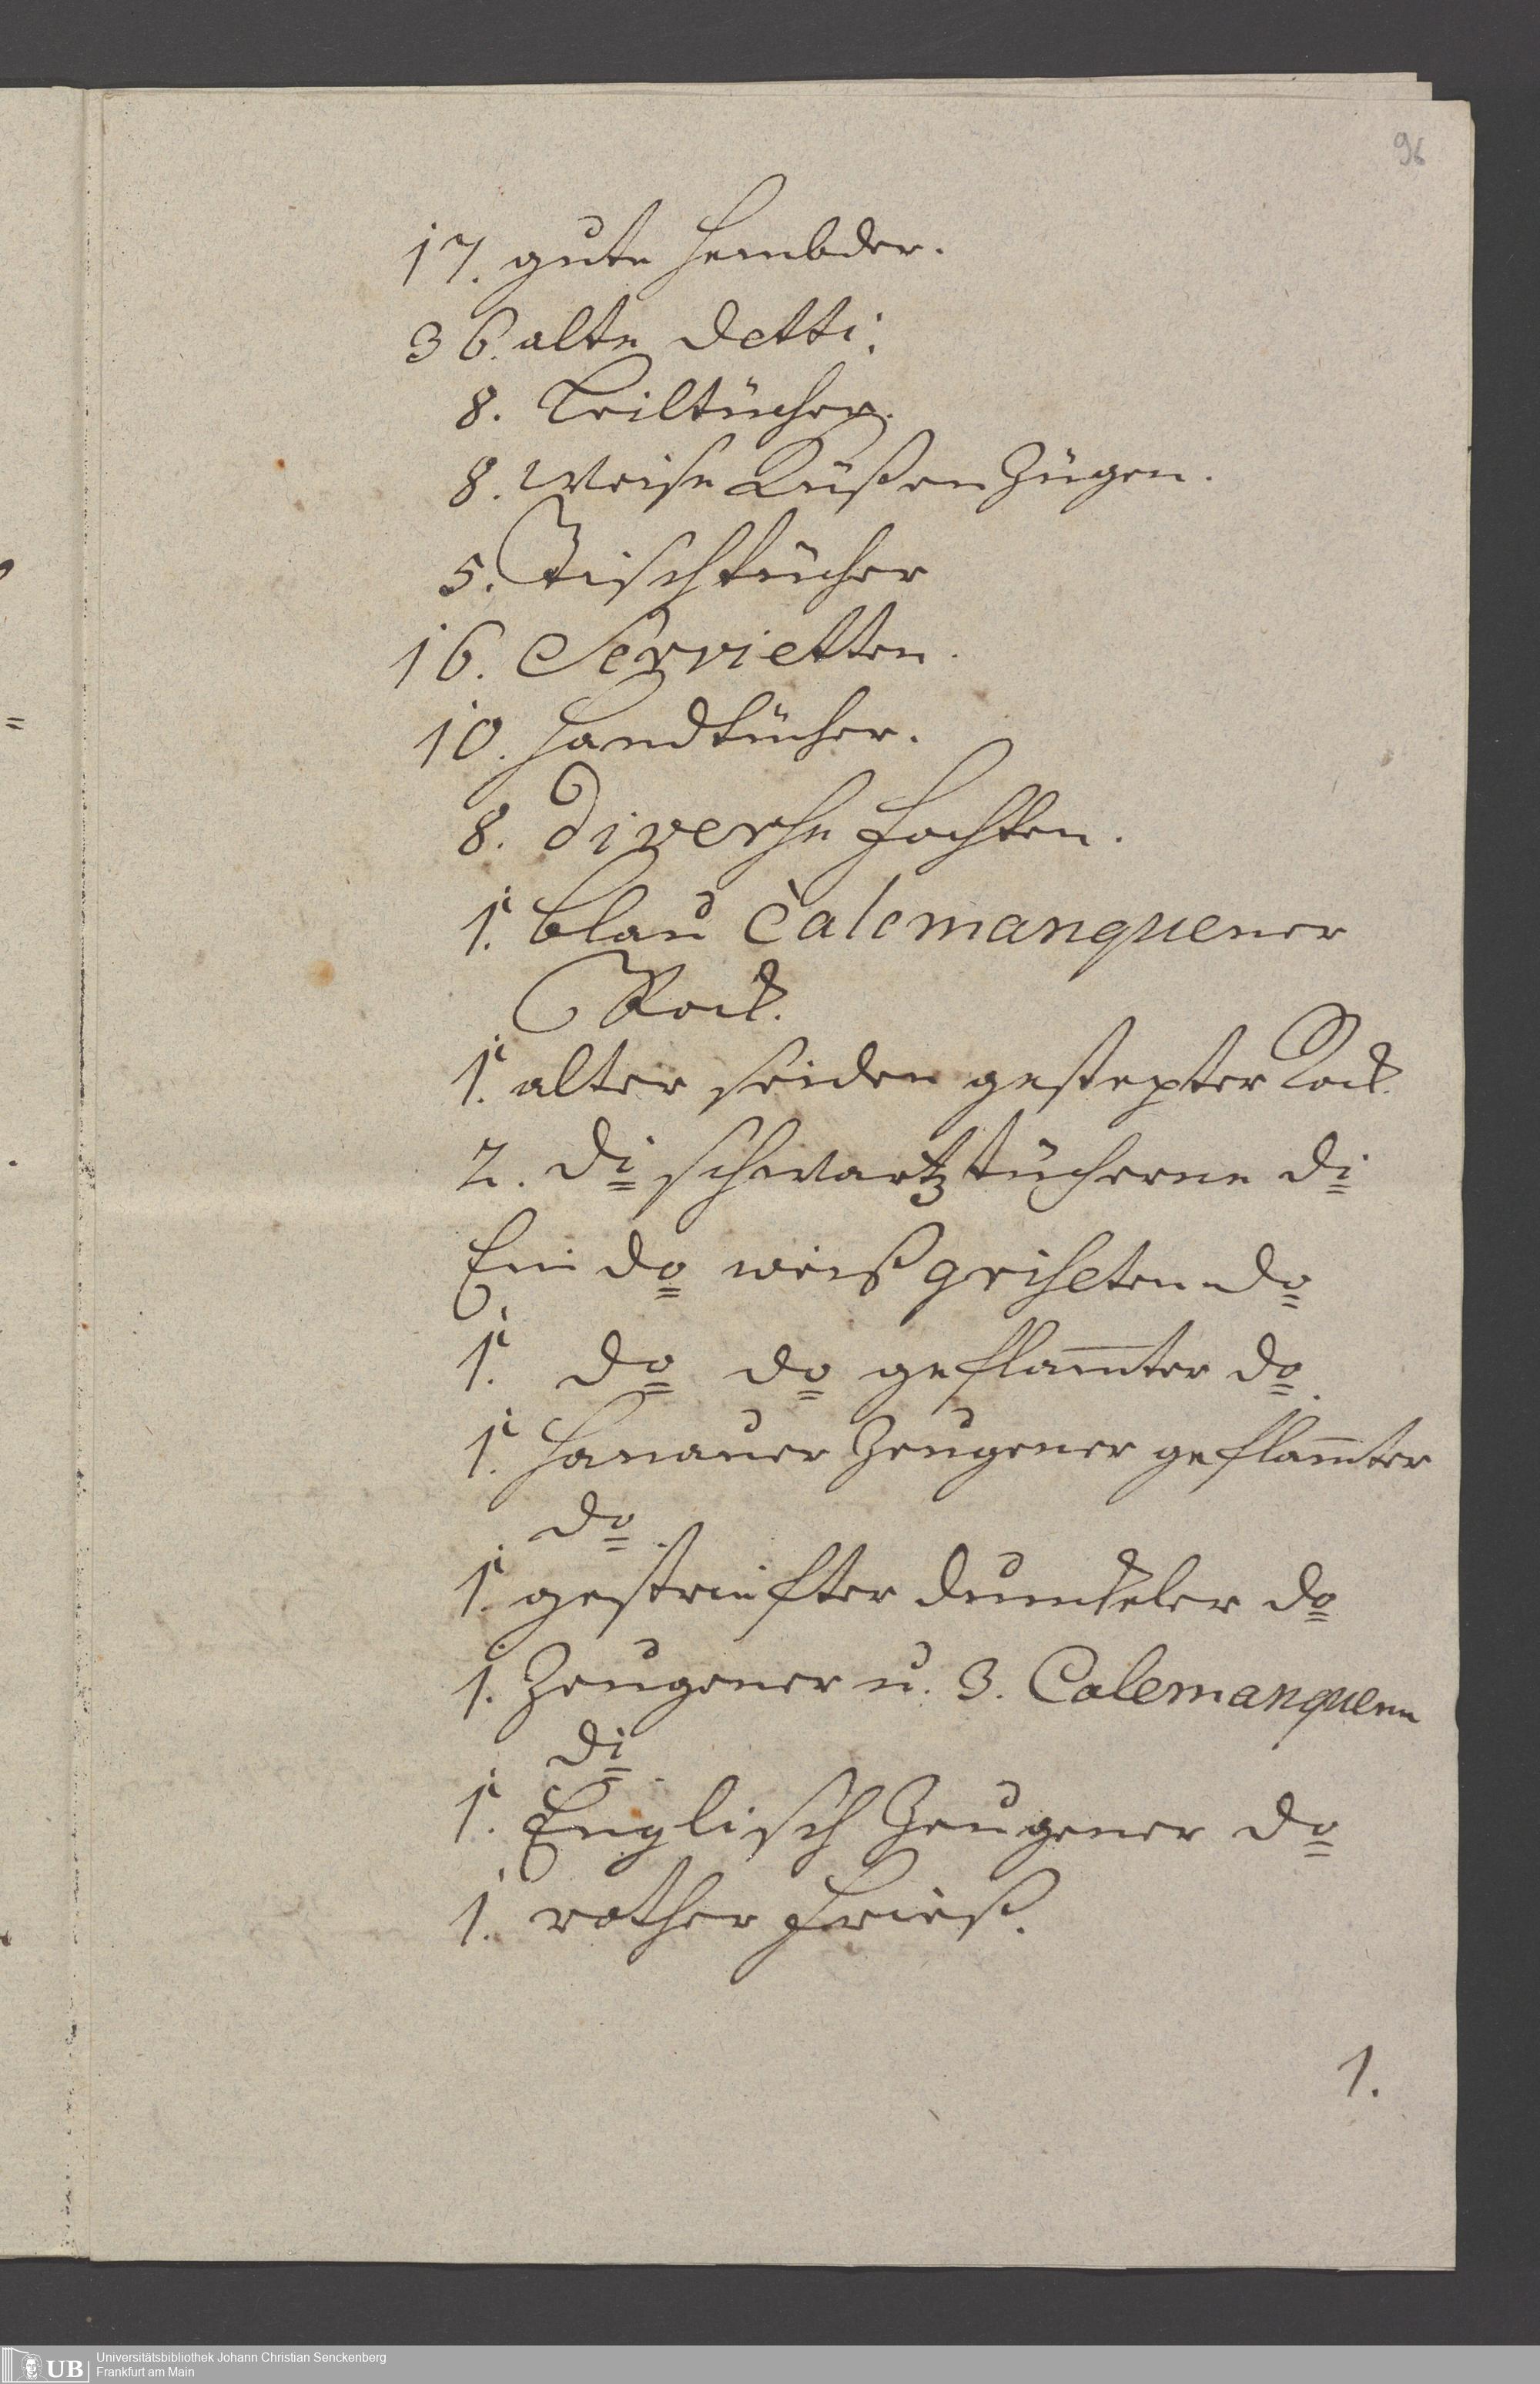 96
17. gute Hembder.
36. alte detti.
8. Leiltücher.
8. Weise Küßen Zügen.
5. Tischtücher
16. Servietten.
10. Handtücher.
8. diverse
1. blau Calemanquener
Rock.
1. alter seiden gestepter Rock
2. di schwartz tücherne di
Ein do weiß do
1. do do geflam̅ter do
1. Hanauer Zeugener geflam̅ter
do.
1. gestreifter dunckeler do
1. Zeugener u. 3. Calemanquene
di.
1. Englisch Zeugener do
1. rother Frieß.
1.
UB Universitätsbibliothek Johann Christian Senckenberg
Frankfurt am Main